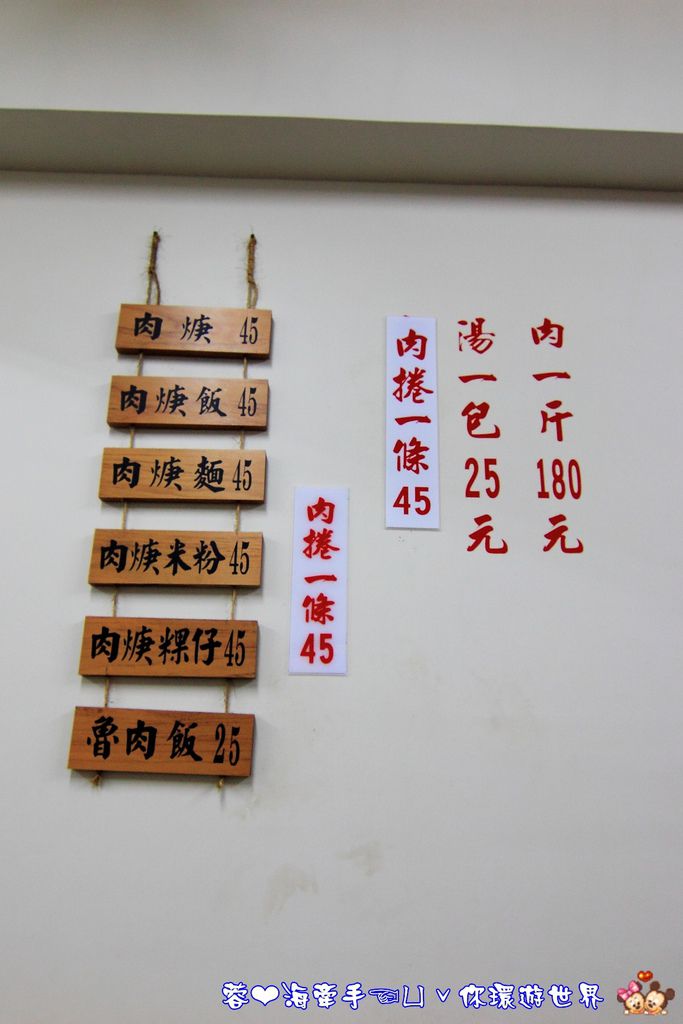 肉焿 45
肉焿飯 45
肉焿麵 45
肉焿米粉 45
肉焿粿仔 45
魯肉飯 25
肉捲一條 45
肉捲一條 45
湯一包 25 元
肉一斤 180 元
蓉❤海牽手☜凵ˇ你環遊世界